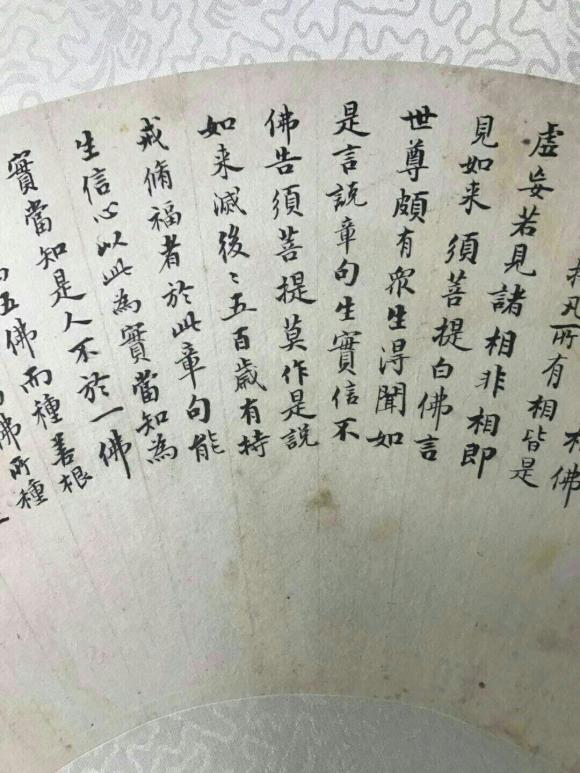 相佛
凡所有相皆是
虛妄若見諸相非相即
見如来須菩提白佛言
世尊頗有衆生得聞如
是言說章句生實信不
佛告須菩提莫作是說
如来滅後〻五百歲有持
戒脩福者於此章句能
生信心以此為實當知為
實當知是人不於一佛
五佛而種善根
佛所種